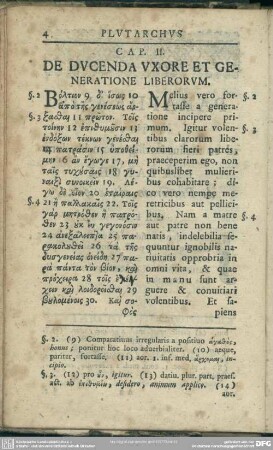 4 PLUTARCHVS
CAP. II.
DE DVCENDA VXORE ET GE-
NERATIONE LIBERORVM.
§. 2
Βέλτιον 9. δ' ἴσως 10
ἀπὸ τῆς γενέσεως ἄρ-
§. 3
ξασθαι 11 πρῶτον. Τοῖς
τοίνυν 12 ἐπιθυμοῦσιν 13
ἐνδόξων τέκνων γενέσθαι
πατράσιν 15 ὑποθεί-
μην 16 ἂν ἔγωγε 17, μὴ
ταῖς τυχούσαις 18 γυ-
ναιξὶ συνοικεῖν 19. Λέ-
γω δ' οἷον 20 ἑταίραις
§. 4
21 ἢ παλλακαῖς 22. Τοῖς
γὰρ μητρόθεν ἢ πατρό-
θεν 23 οὐκ εὖ γεγονόσιν
24 ἀνεξάλειπτα 25 πα-
ρακολουθεῖ 26 τὰ τῆς
δυσγενείας ὀνείδη 27 πα-
ρὰ πάντα τὸν βίον, καὶ
πρόχειρα 28 τοῖς ἐλέγ-
χειν καὶ λοιδορεῖσθαι 29
βουλομένοις 30. Καὶ σο-
φὸς
Melius vero for-
tasse a genera-
tione incipere pri-
mum. Igitur volen-
§. 3
tibus clarorum libe-
rorum fieri patres,
praeceperim ego, non
quibuslibet mulieri-
bus cohabitare; di-
co vero nempe me-
retricibus aut pellici-
bus. Nam a matre
§. 4
aut patre non bene
natis, indelebilia se-
quuntur ignobilis na-
tiuitatis opprobria in
omni vita, & quae
in manu sunt ar-
guere & conuitiari
volentibus. Et sa-
piens
§. 2. (9) Comparatiuum irregularis a positiuo ἀγαθὸς,
bonus; ponitur hoc loco aduerbialiter. (10) aeque,
pariter, fortasse. (11) aor. 1. inf. med. ἄρχομαι, in-
cipio.
§. 3. (12) pro οὖν, igitur. (13) datiu. plur. part. praes.
act. ab ἐπιθυμέω, desidero, animum applico. (14)
aor.